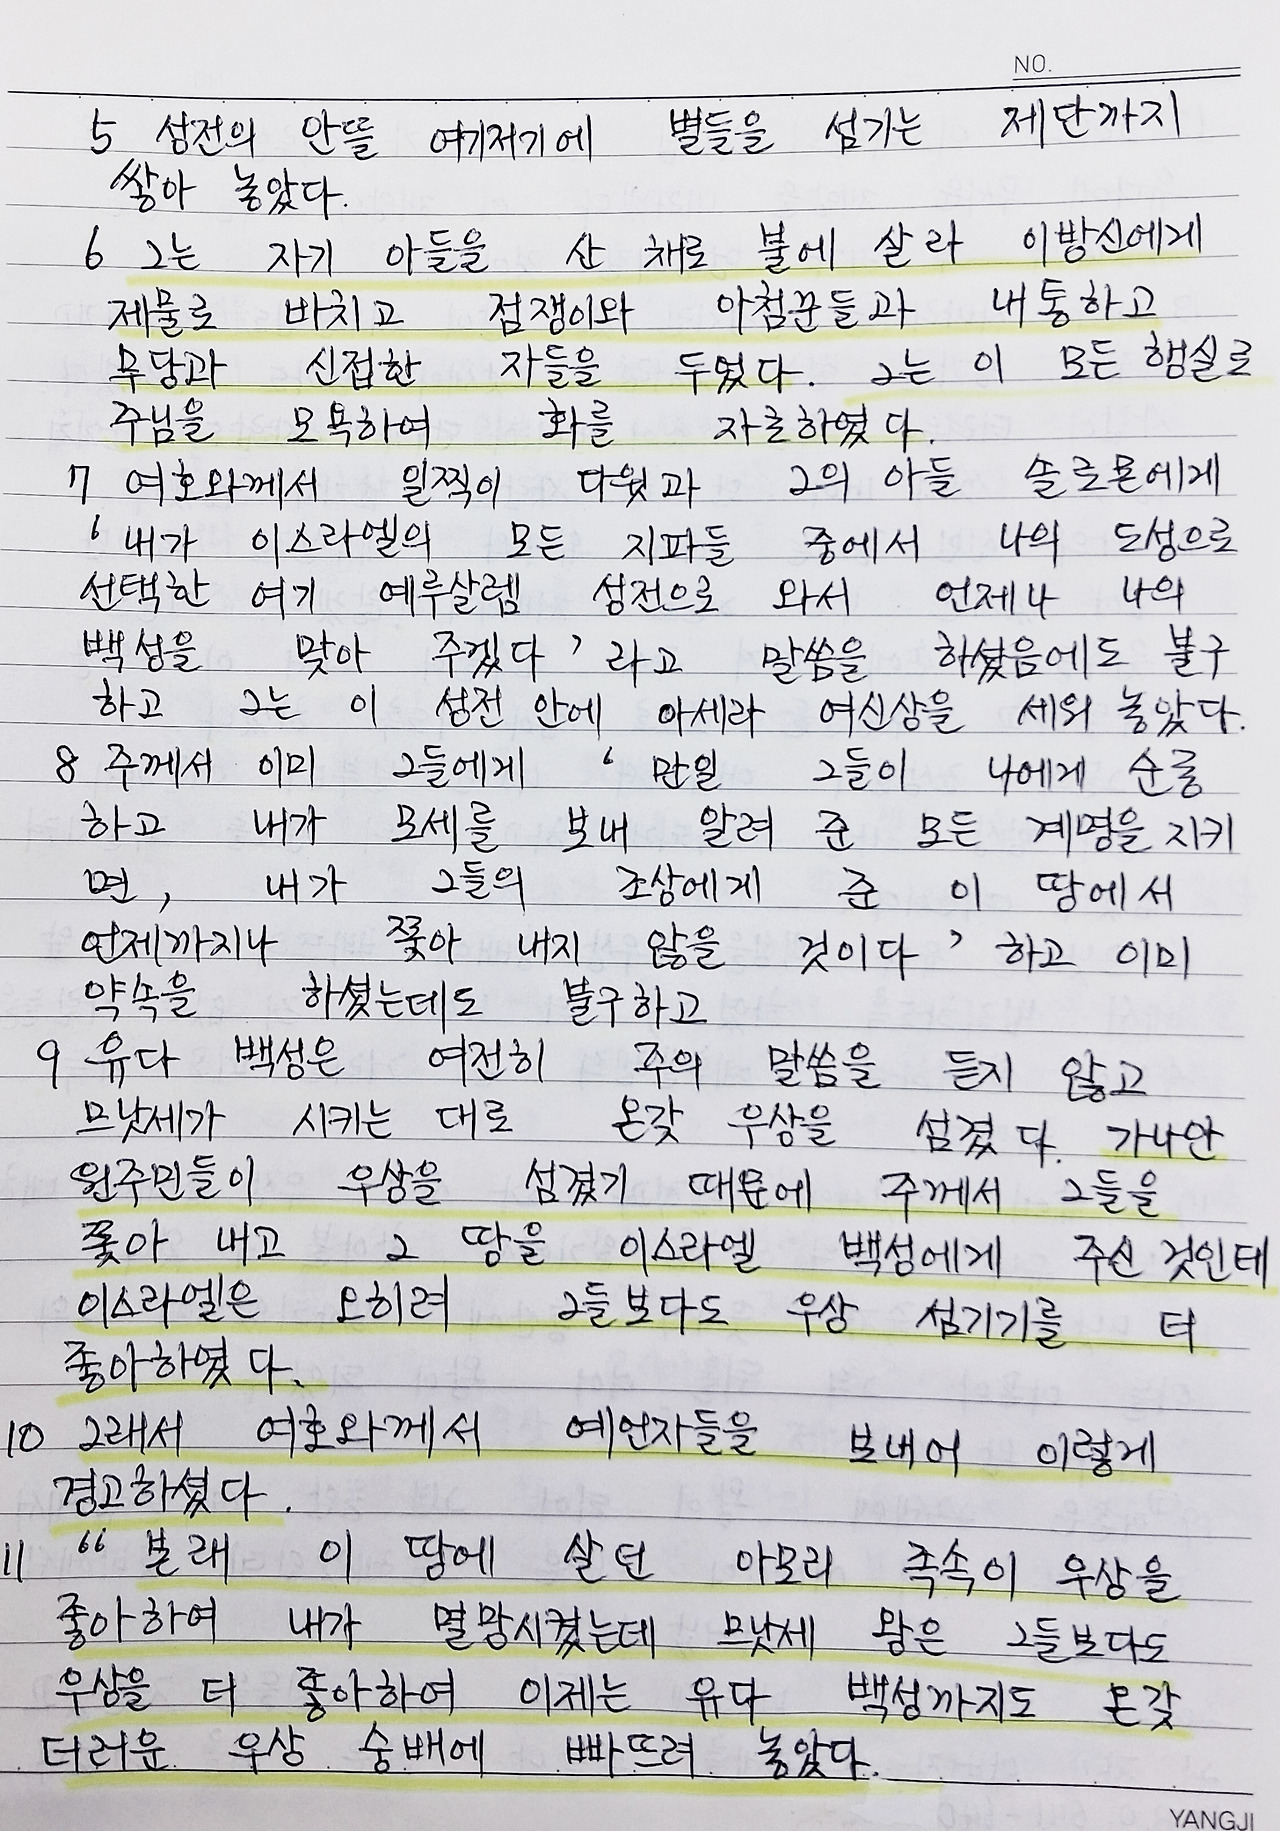 NO.
5 성전의 안뜰 여기저기에 별들을 섬기는 제단까지
쌓아 놓았다.
6 그는 자기 아들을 산 채로 불에 살라 이방신에게
제물로 바치고 점쟁이와 아첨꾼들과 내통하고
무당과 신접한 자들을 두었다. 그는 이 모든 행실로
주님을 모욕하여 화를 자초하였다.
7 여호와께서 일찍이 다윗과 그의 아들 솔로몬에게
‘내가 이스라엘의 모든 지파들 중에서 나의 도성으로
선택한 여기 예루살렘 성전으로 와서 언제나 나의
백성을 맞아 주겠다’라고 말씀을 하셨음에도 불구
하고 그는 이 성전 안에 아세라 여신상을 세워 놓았다.
8 주께서 이미 그들에게 ‘만일 그들이 나에게 순종
하고 내가 모세를 보내 알려 준 모든 계명을 지키
면, 내가 그들의 조상에게 준 이 땅에서
언제까지나 쫓아 내지 않을 것이다’ 하고 이미
약속을 하셨는데도 불구하고
9 유다 백성은 여전히 주의 말씀을 듣지 않고
므낫세가 시키는 대로 온갖 우상을 섬겼다. 가나안
원주민들이 우상을 섬겼기 때문에 주께서 그들을
쫓아 내고 그 땅을 이스라엘 백성에게 주신 것인데
이스라엘은 오히려 그들보다도 우상 섬기기를 더
좋아하였다.
10 그래서 여호와께서 예언자들을 보내어 이렇게
경고하셨다.
11 “본래 이 땅에 살던 아모리 족속이 우상을
좋아하여 내가 멸망시켰는데 므낫세 왕은 그들보다도
우상을 더 좋아하여 이제는 유다 백성까지도 온갖
더러운 우상 숭배에 빠뜨려 놓았다.
YANGJI